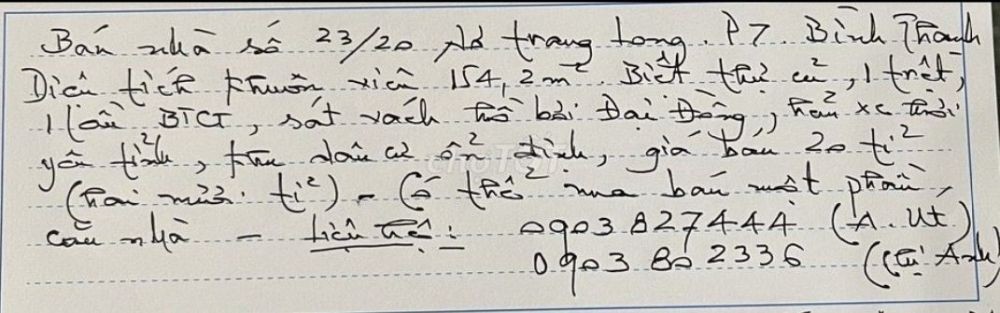 Bán nhà số 23/20 Nơ trang long. P7. Bình Thạnh
Diện tích khuôn viên 154,2m². Biệt thự cũ, 1 trệt,
1 lầu BTCT, sát vách hồ bơi Đại Đồng, hẻm xe hơi
yên tĩnh, khu dân cư ổn định, giá bán 20 tỉ
(hai mươi tỉ) - Có thể mua bán một phần
căn nhà - Liên hệ: 0903 827444 (A. Út)
0903 802336 (Anh)
choTOT